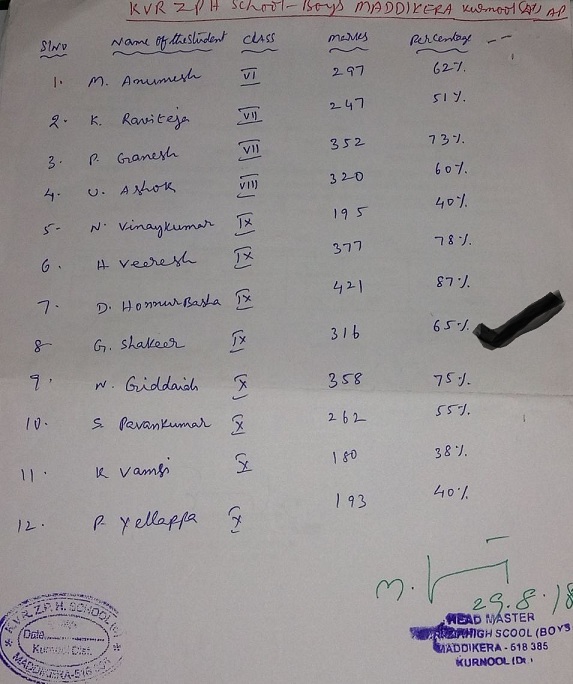 KVR Z P H School-Boys MADDIKERA Kurnool (Dt) AP
Sl No Name of the student CLASS marks Percentage
1. M. Anumesh VI 297 62%
2. K. Raviteja VII 247 51%
3. P. Ganesh VII 352 73%
4. U. Ashok VIII 320 60%
5- N. Vinaykumar IX 195 40%
6. H Veeresh IX 377 78%
7. D. Honnur Basha IX 421 87%
8- G. Shakeer IX 316 65%
9. N. Giddaiah X 358 75%
10. S. Pavankumar X 262 55%
11. K Vamsi X 180 38%
12. P. Yellappa X 193 40%
29.8.18
HEAD MASTER
HIGH SCOOL (BOYS
MADDIKERA - 518 385
KURNOOL (Dt.
K.V.R. Z.P. H. SCHOOL
Date
Kurnool Dist.
MADDIKERA-518 385